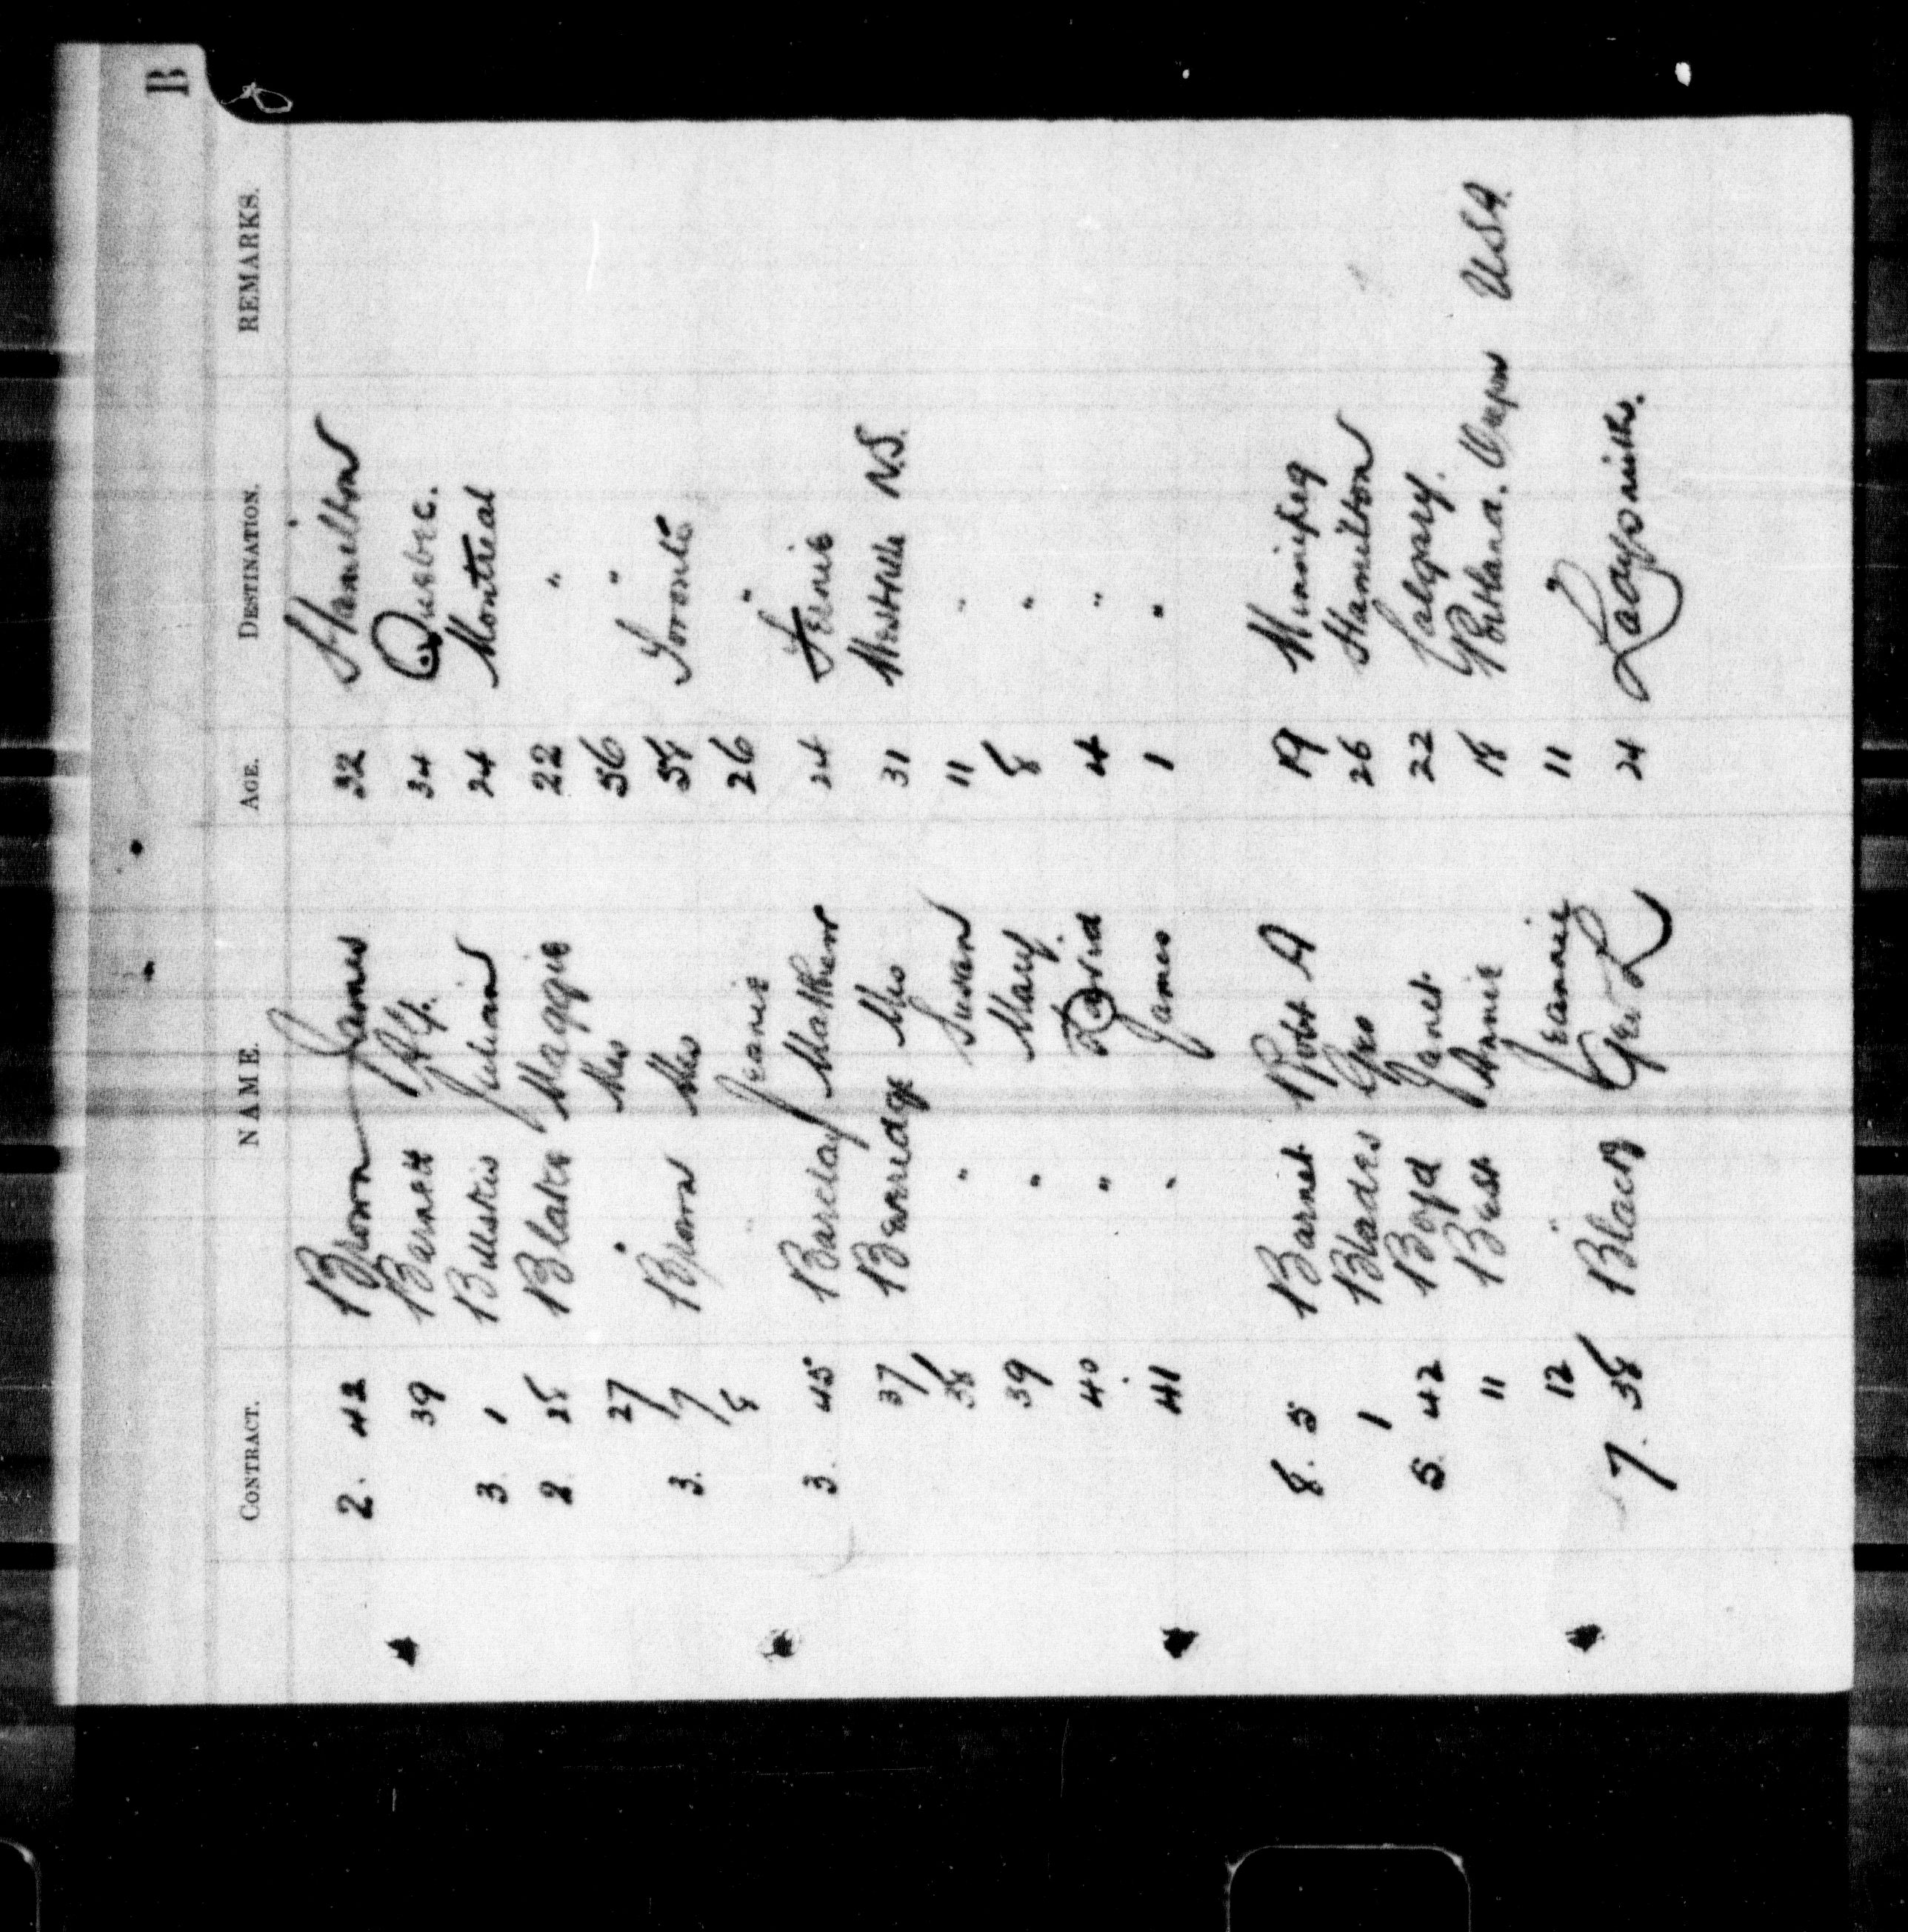 B
CONTRACT. NAME. AGE. DESTINATION. REMARKS.
2. 42 Brown James 32 Hamilton
39 Barnett Alf. 34 Quebec.
3. 1 Julian 24 Montreal
2. 28 Blake Maggie 22 "
27 " Mrs 56 "
3. 7 Brown Mrs 58 Toronto
8 " Jeanie 26 "
3. 45 Barclay Matthew 24 Fernie
37 Beveridge Mrs 31 Westville N.S.
38 " Susan 11 "
39 " Mary. 8 "
40 " David 4 "
41 " James 1 "
8. 5 Barnet Robt A 19 Winnipeg
1 Blades Geo 26 Hamilton
5. 42 Boyd Janet 22 Calgary.
11 Best Annie 18 Portland. Oregon USA.
12 " Jeannie 11 "
7. 38 Black Geo R 24 Ladysmith.